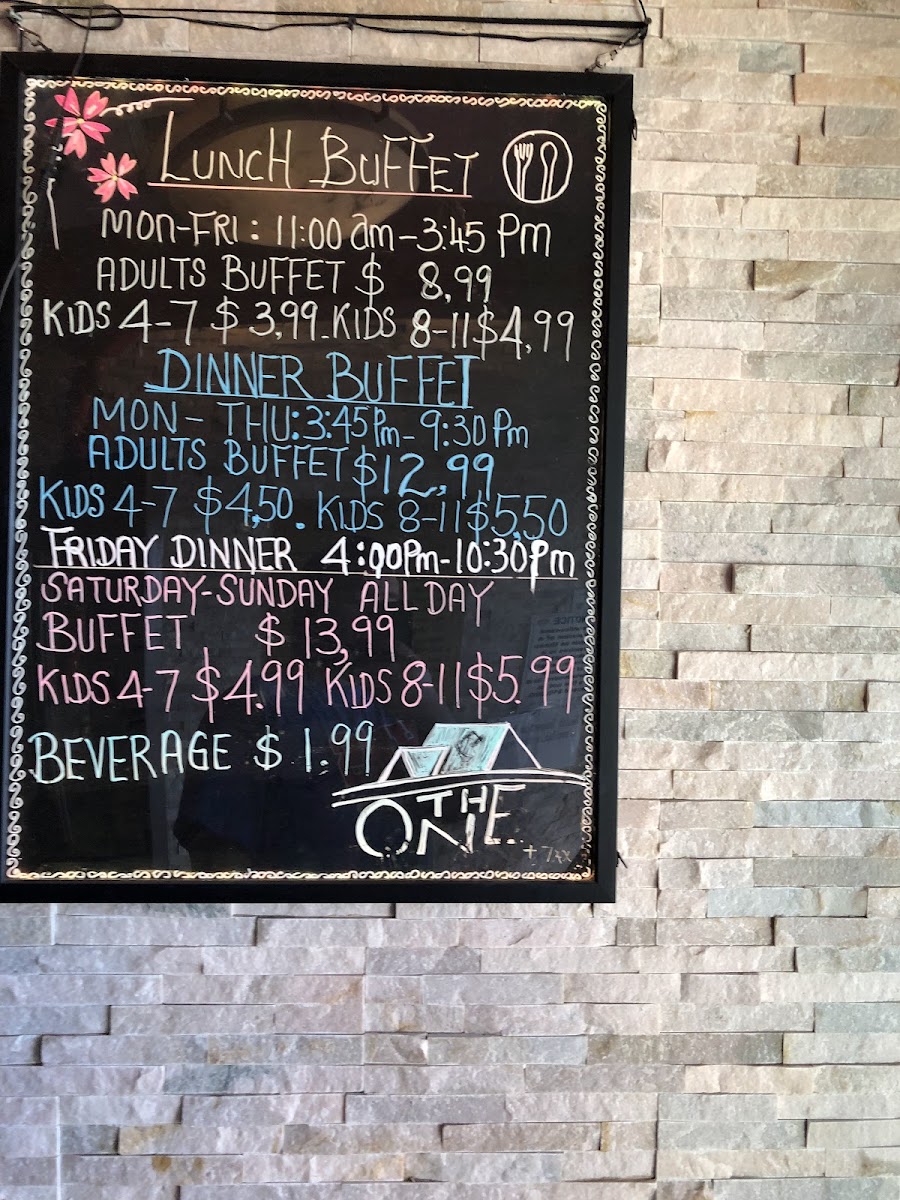 LUNCH BUFFET
MON-FRI: 11:00 am-3:45 Pm
ADULTS BUFFET $ 8,99
KIDS 4-7 $3,99. KIDS 8-11 $4,99
DINNER BUFFET
MON- THU: 3:45 Pm- 9:30 Pm
ADULTS BUFFET $12,99
KIDS 4-7 $4,50. KIDS 8-11 $5,50
FRIDAY DINNER 4:00Pm-10:30Pm
SATURDAY-SUNDAY ALL DAY
BUFFET $ 13,99
KIDS 4-7 $4.99 KIDS 8-11 $5.99
BEVERAGE $ 1.99
THE
ONE
+ Tax